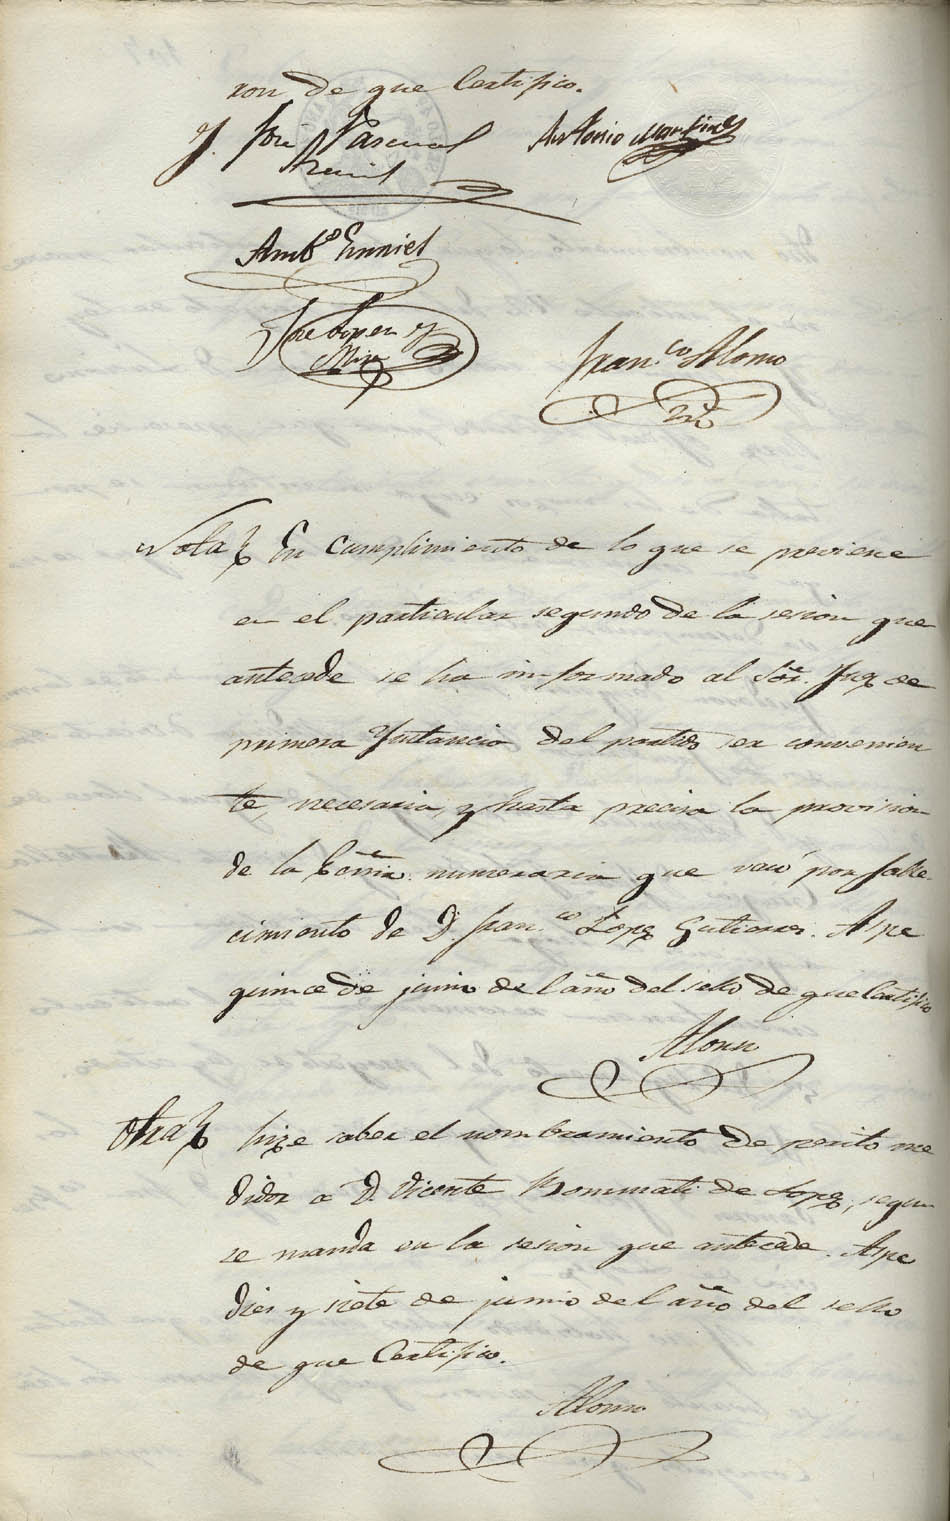 ron de que Certifico.
J. José Pascual
Antonio Martinez
Amb.º
José Lopez y
Mira
Fran.co Alonso
Srio
Nota En cumplimiento de lo que se previene
en el particular segundo de la sesion que
antecede se ha informado al Sõr. Juez de
primera Ynstancia del partido ser convenien
te, necesaria, y hasta precisa la provision
de la Escñia. numeraria que vacó por falle-
cimiento de D. Fran.co Lopez Gutierrez. Aspe
quince de junio del año del sello de que Certifico
Alonso
Otra hize saber el nombramiento de perito me
didor a D. Vicente de Lopez, segun
se manda en la sesion que antecede. Aspe
diez y siete de junio del año del sello
de que Certifico.
Alonso